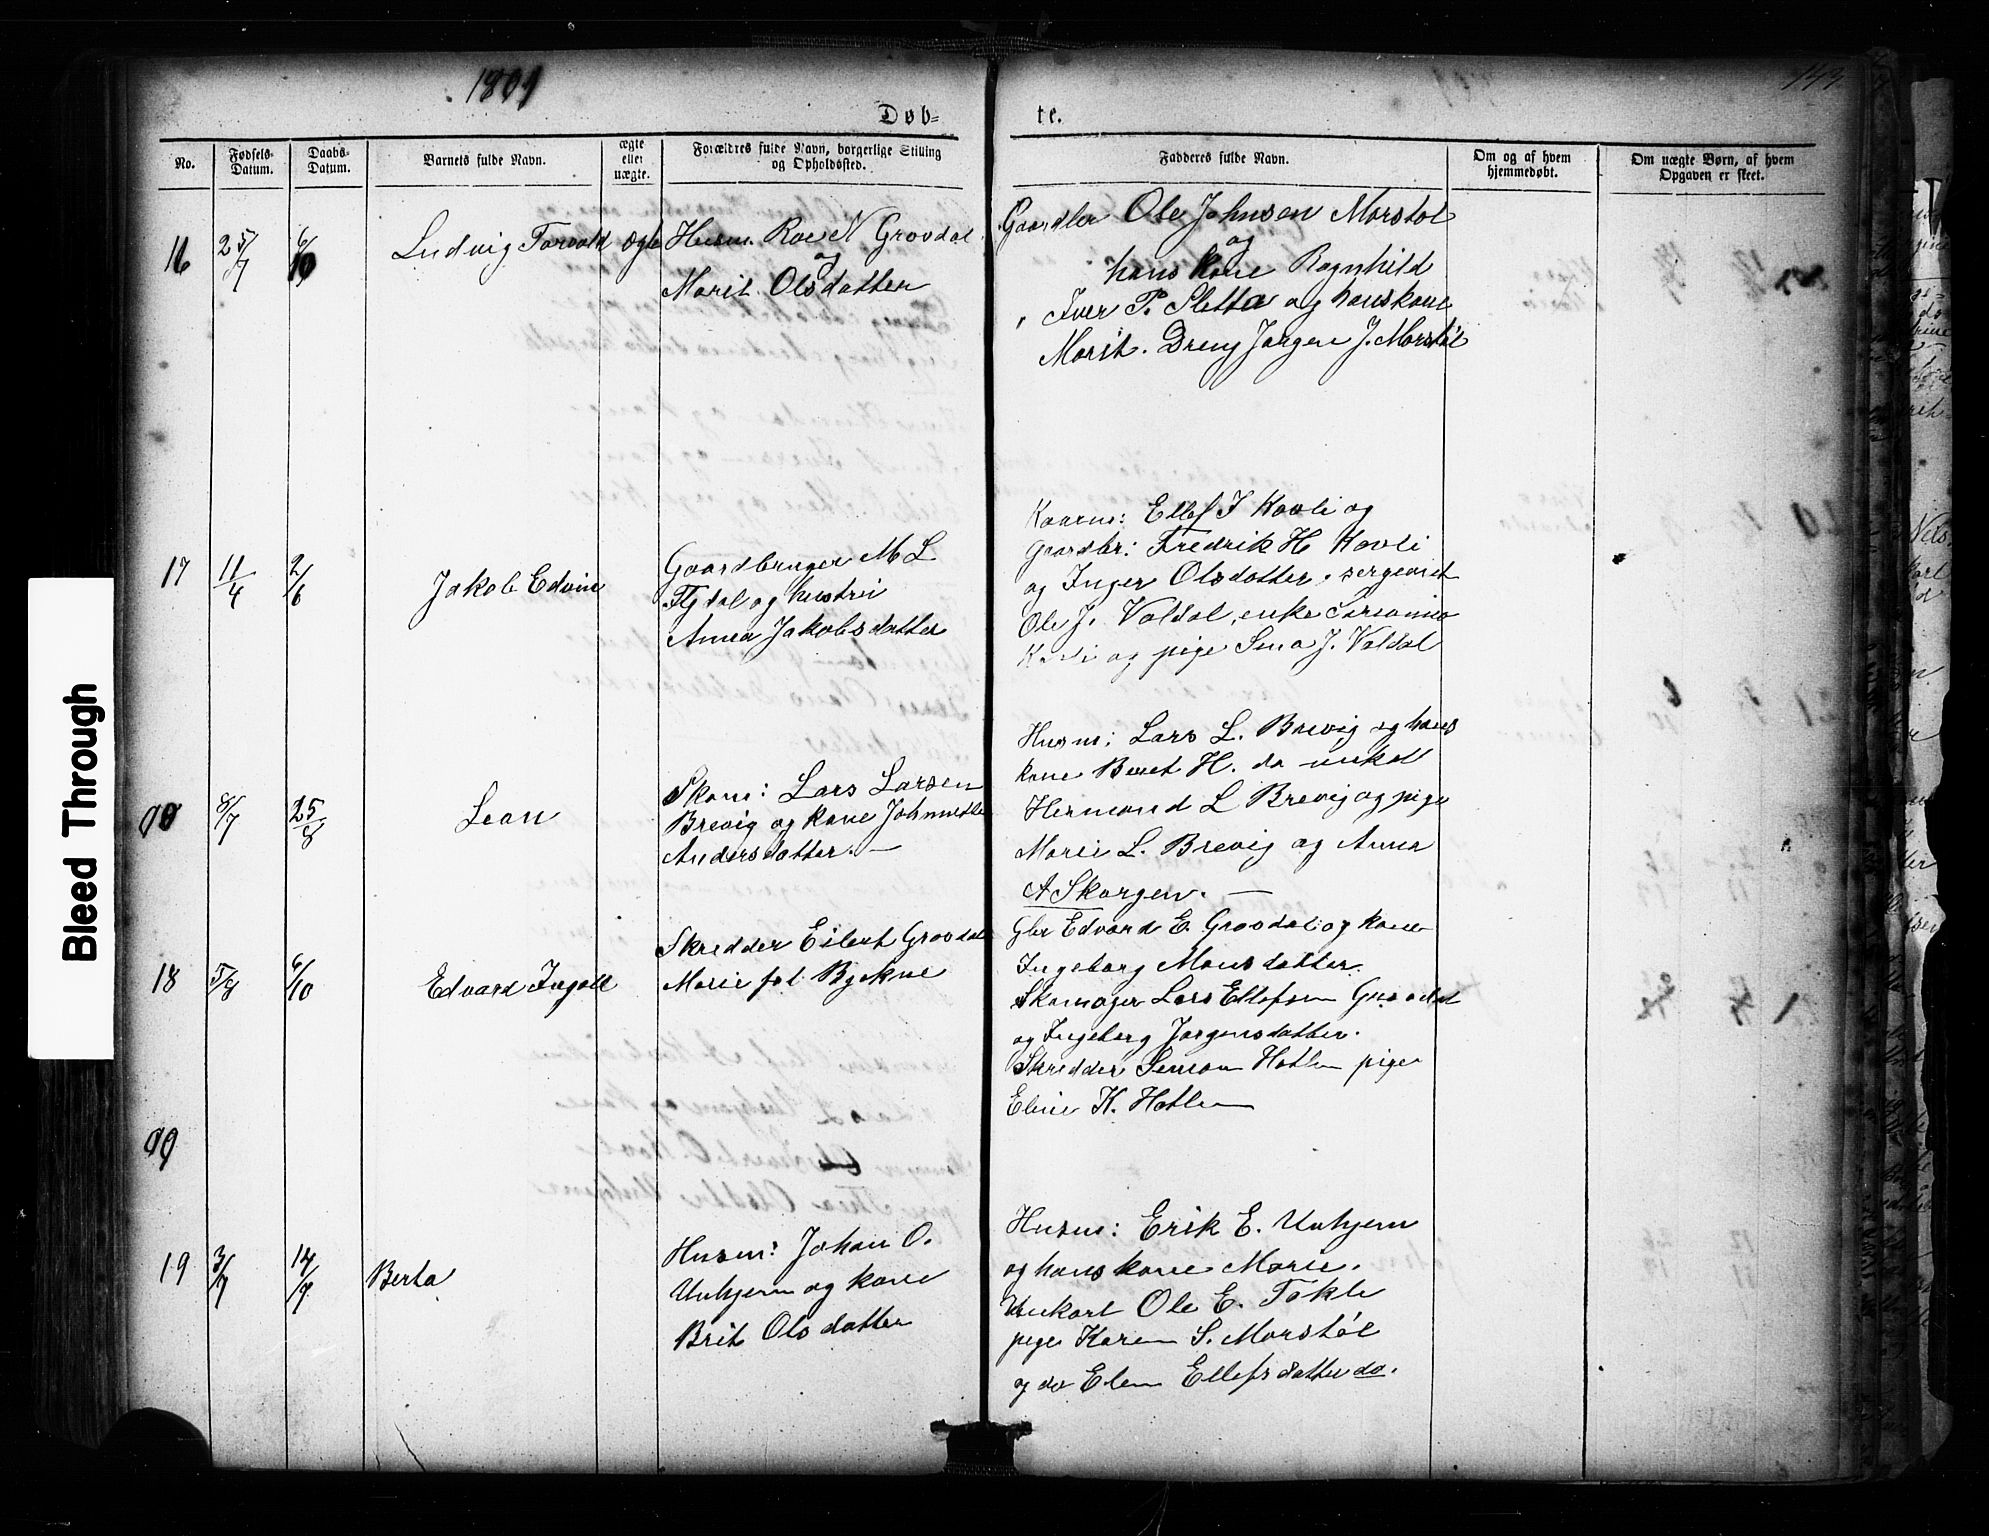 1889
143
Døb=
te.
No.
Fødsels-
Datum.
Daabs-
Datum.
Barnets fulde Navn.
ægte
eller
uægte.
Forældres fulde Navn, borgerlige Stilling
og Opholdssted.
Fadderes fulde Navn.
Om og af hvem
hjemmedøbt.
Om uægte Børn, af hvem
Opgaven er skeet.
16
25/7
6/10
Ludvig Torvald
ægte
Husm. Roe N Grovdal
og
Marit Olsdatter
Gaardbr Ole Johnsen Morstøl
og
hans kone Ragnhild
Iver P. Sletta og hans kone
Marit. Dreng Jørgen J. Morstøl
17
11/4
2/6
Jakob Edvin
Gaardbruger M L
Flydal og hustru
Anna Jakobsdatter
Kaarm: Ellef I Kavli og
Gaardbr: Fredrik H Kavli
og Inger Olsdatter, sergeant
Ole J. Valdal, enke
Kavli og pige Sina J. Valdal
8/7
25/8
Lean
Skom: Lars Larsen
Brevig og kone
Andersdatter. —
Husm: Lars L. Brevig og hans
kone Beret H. do unkal
Hermand L Brevig og pige
Marie L. Brevig og Anna
A Skorgen. —
18
5/8
6/10
Edvard Ingolf
Skredder Eilert Grovdal
Marie fød Bykne
Gbr Edvard E. Grovdal og kone
Ingeborg Monsdatter.
Skomager Lars Ellefsen Grovdal
og Ingeborg Jørgensdatter.
Skredder Simon Hatlen pige
Eline K. Hatlen
19
3/7
14/9
Berta
Husm: Johan O.
Unhjem og kone
Brit Olsdatter
Husm: Erik E. Unhjem
og hans kone Marie.
Unkarl Ole E. Tokle
pige Karen S. Morstøl
og do Elen Ellefsdatter do.
Bleed Through